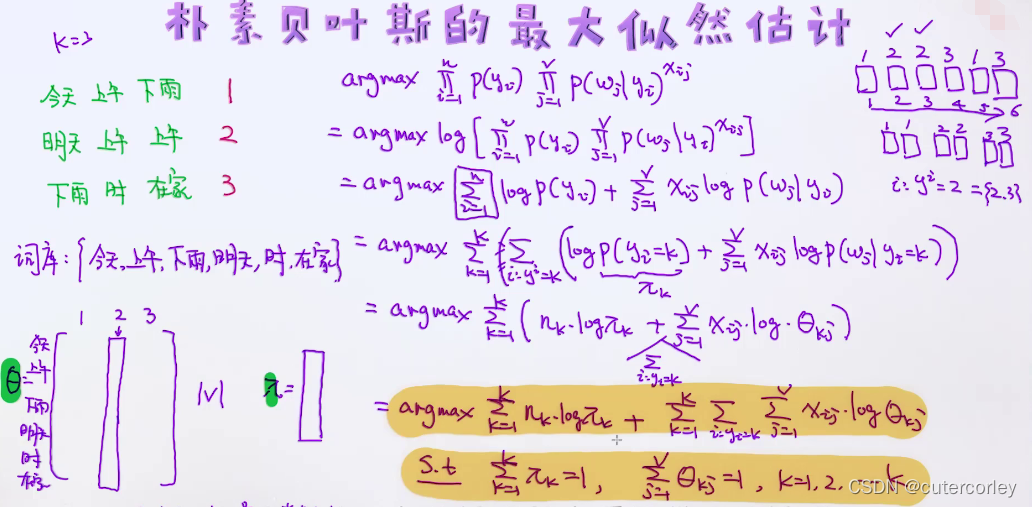 朴素贝叶斯的最大似然估计
K=3
今天 上午 下雨 1
明天 上午 上午 2
下雨 时 在家 3
词库：{今天,上午,下雨,明天,时,在家}
1 2 3
θ=
今天
上午
下雨
明天
时
在家
|V|
π=
argmax ∏_{i=1}^{n} p(y_i) ∏_{j=1}^{V} p(w_j|y_i)^{x_ij}
= argmax log[∏_{i=1}^{n} p(y_i) ∏_{j=1}^{V} p(w_j|y_i)^{x_ij}]
= argmax ∑_{i=1}^{n} log p(y_i) + ∑_{j=1}^{V} x_ij log p(w_j|y_i)
= argmax ∑_{k=1}^{K} (∑_{i:y^i=k} (log p(y_i=k) + ∑_{j=1}^{V} x_ij log p(w_j|y_i=k)))
π_k
= argmax ∑_{k=1}^{K} (n_k·log π_k + ∑_{j=1}^{V} x_ij·log·θ_kj)
∑_{i:y_i=k}
= argmax ∑_{k=1}^{K} n_k·log π_k + ∑_{k=1}^{K} ∑_{i:y_i=k} ∑_{j=1}^{V} x_ij·log θ_kj
s.t ∑_{k=1}^{K} π_k=1, ∑_{j=1}^{V} θ_kj=1, k=1,2. k
1 2 2 3 1 3
1 2 3 4 5 6
1 1 2 2 3 3
i:y^i=2={2.3}
CSDN @cutercorley